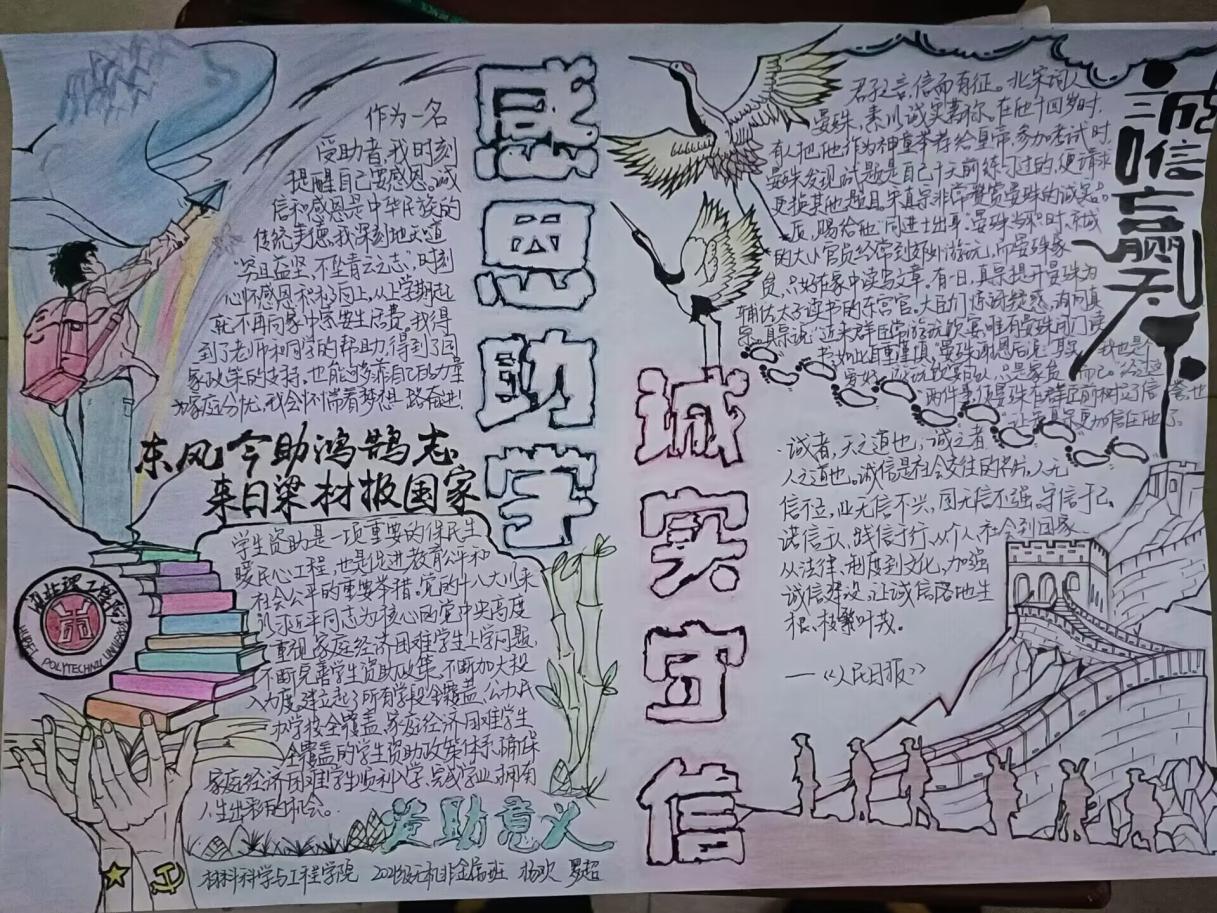 感恩助学
作为一名
受助者,我时刻
提醒自己要感恩。诚
信和感恩是中华民族的
传统美德,我深刻地知道
"穷且益坚,不坠青云之志",时刻
心怀感恩和积极向上,从上学期起
就不再向家中索要生活费。我得
到了老师和同学的帮助,得到了国
家政策的支持。也能够靠自己的力量
为家庭分忧,我会怀揣着梦想一路奋进!
东风今助鸿鹄志
来日梁材报国家
学生资助是一项重要的保民生
暖民心工程,也是促进教育公平和
社会公平的重要举措。党的十八大以来
以习近平同志为核心的党中央高度
重视家庭经济困难学生上学问题,
不断完善学生资助政策,不断加大投
入力度,建立起了所有学段全覆盖、公办民
办学校全覆盖、家庭经济困难学生
全覆盖的学生资助政策体系,确保
家庭经济困难学生顺利入学、完成学业、拥有
人生出彩的机会。
资助意义
湖北理工学院
HUBEI POLYTECHNIC UNIVERSITY
材料科学与工程学院 2021级无机非金属班 杨欢
诚实守信
诚信赢天下
君子之言,信而有征。北宋词人
晏殊,素以诚实著称。在他十四岁时,
有人把他作为神童举荐给皇帝,参加考试时,
晏殊发现试题是自己十天前练习过的,便请求
更换其他题目,宋真宗非常赞赏晏殊的诚实品
质,赐给他"同进士出身"。晏殊当职时,京城
的大小官员经常到郊外游玩,而晏殊家
贫,只好在家中读写文章。有一日,真宗提升晏殊为
辅佐太子读书的东宫官,大臣们
真宗说:"近来群臣常游玩饮宴,唯有晏殊闭门读
书,如此自重谨慎,晏殊谢恩后说:"
只是家贫而已。"这
两件事,使晏殊在群臣面前树立了信誉,也
让真宗更加信任他了。
诚者,天之道也,诚之者
人之道也。诚信是社会交往的名片,人无
信不立,业无信不兴,国无信不强。守信于己,
诺信于人,践信于行,从个人、社会到国家
从法律、制度到文化,加强
诚信建设,让诚信落地生
根、枝繁叶茂。
——《人民日报》